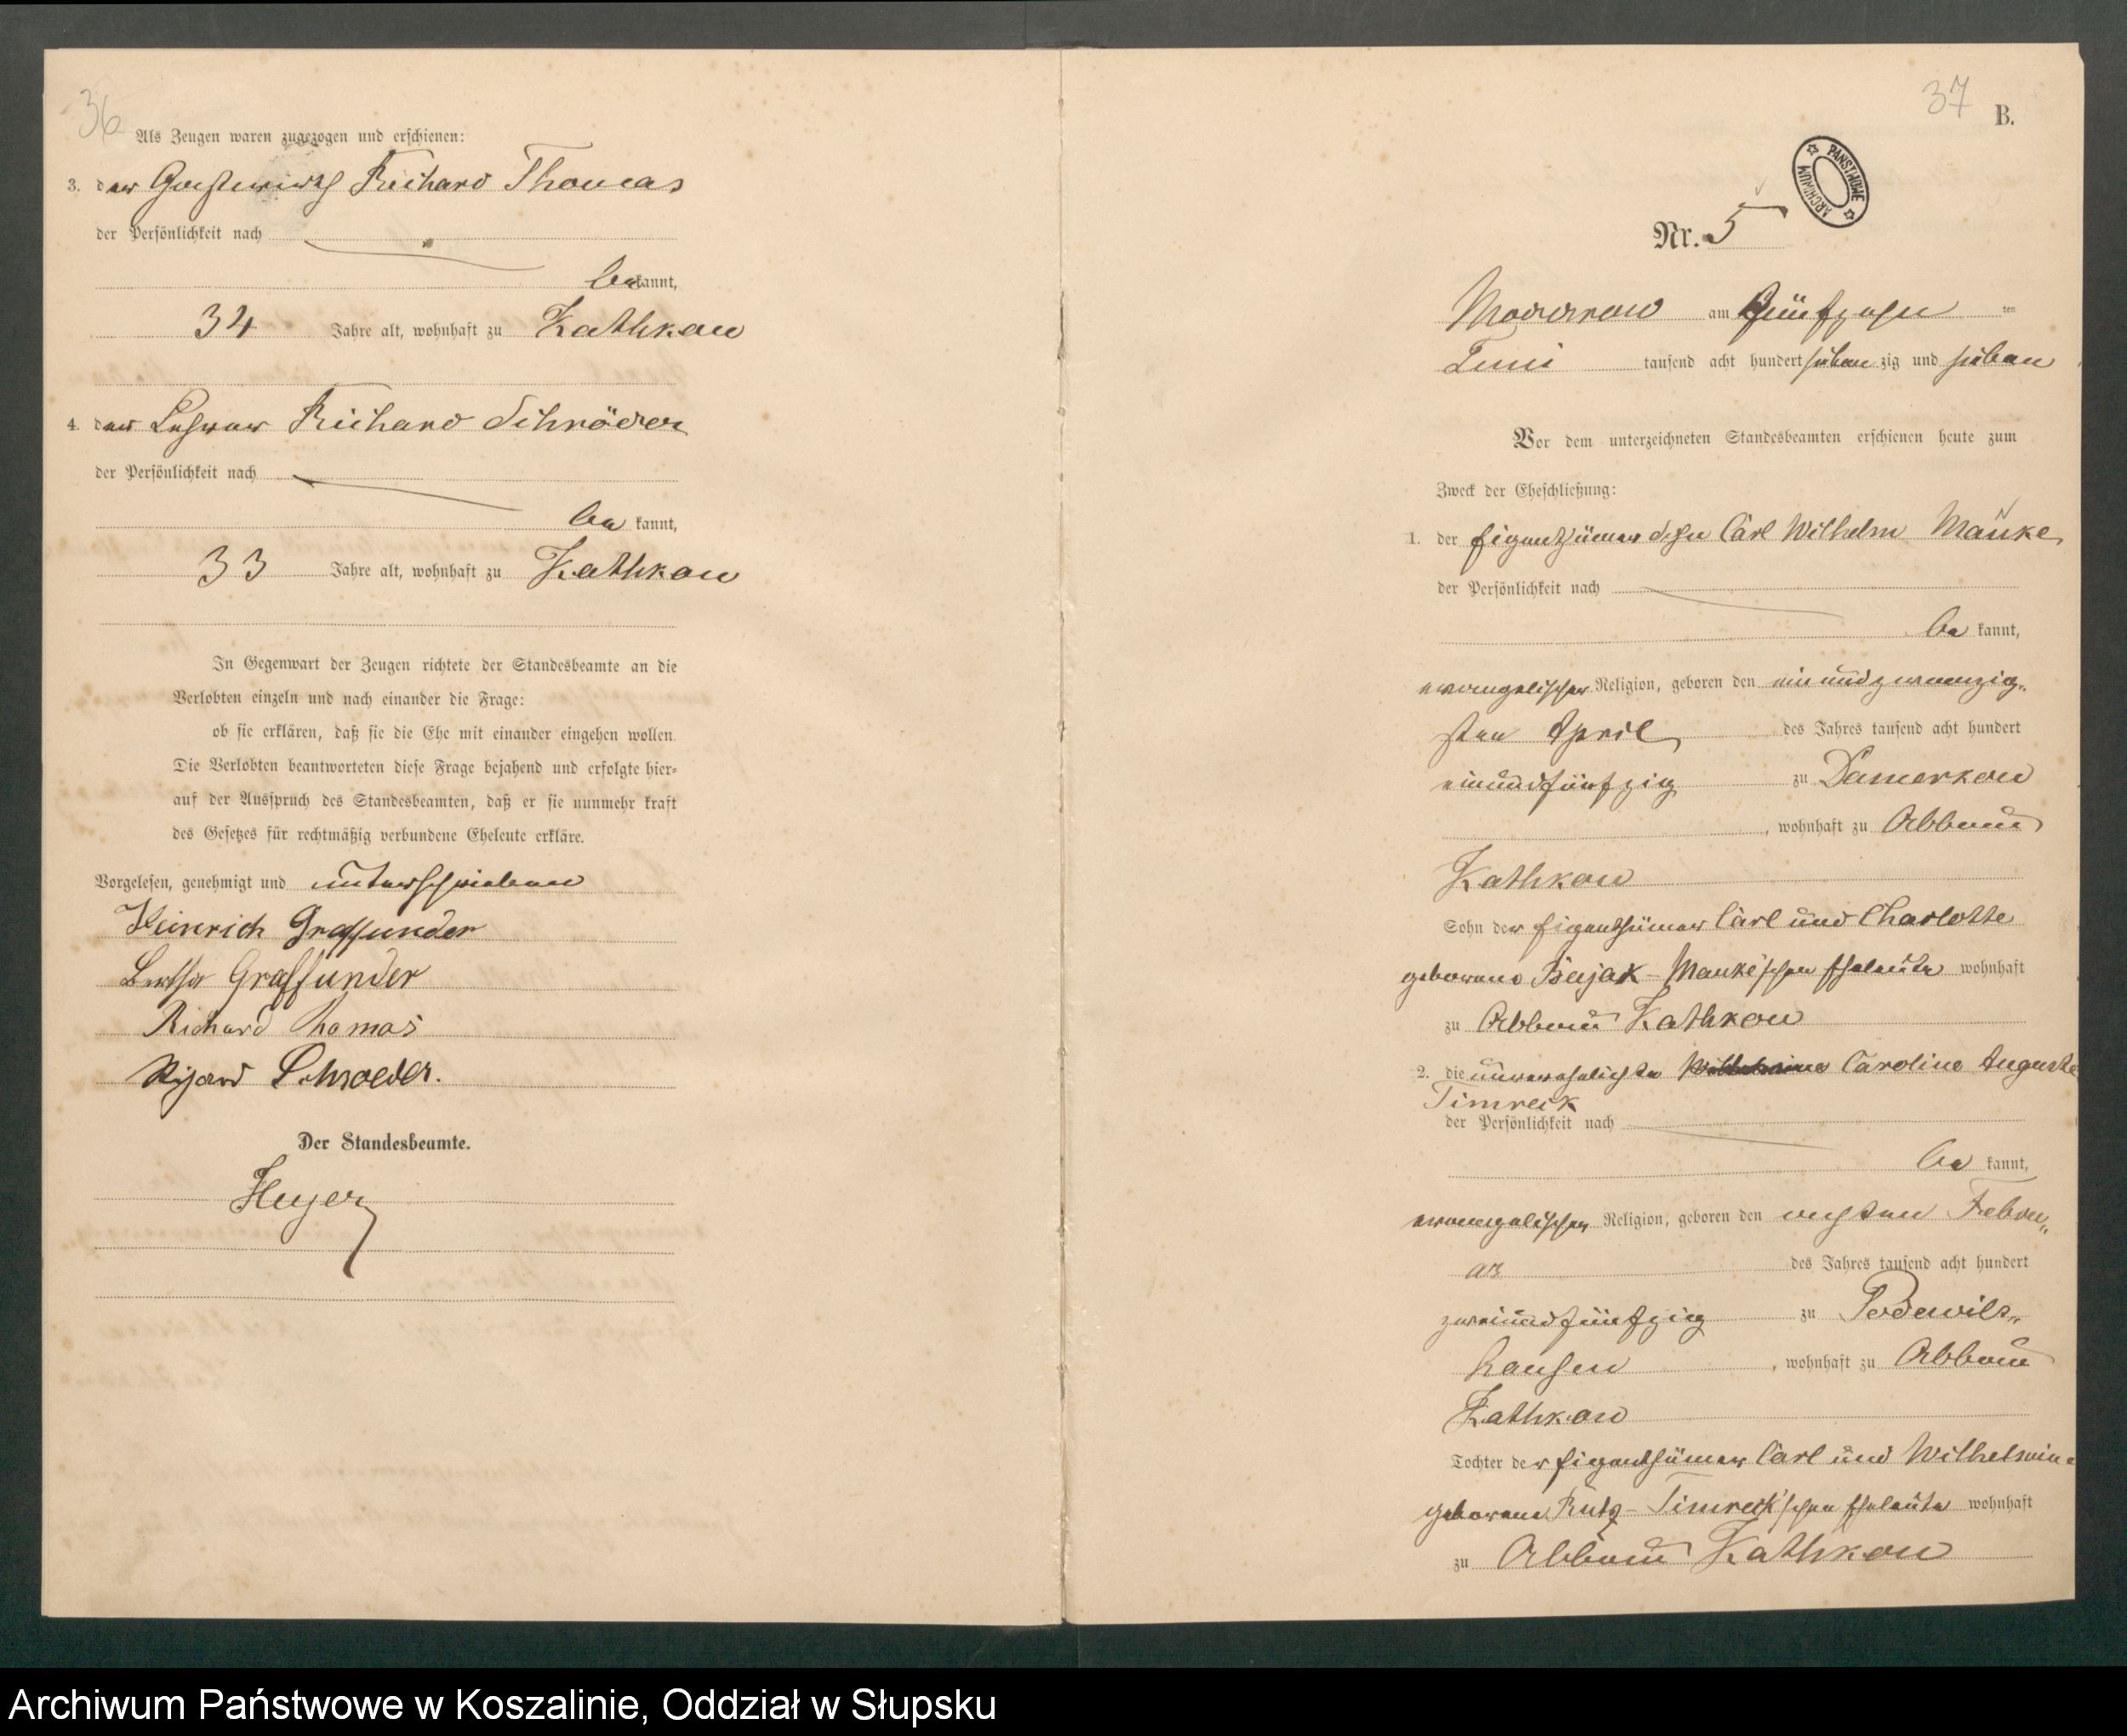 36
Als Zeugen waren zugezogen und erschienen:
3. der Gastwirth Richard Thomas
der Persönlichkeit nach
bekannt,
34 Jahre alt, wohnhaft zu Kathkow
4. der Lehrer Richard Schröder
der Persönlichkeit nach
be kannt,
33 Jahre alt, wohnhaft zu Kathkow
In Gegenwart der Zeugen richtete der Standesbeamte an die
Verlobten einzeln und nach einander die Frage:
ob sie erklären, daß sie die Ehe mit einander eingehen wollen.
Die Verlobten beantworteten diese Frage bejahend und erfolgte hier-
auf der Ausspruch des Standesbeamten, daß er sie nunmehr kraft
des Gesetzes für rechtmäßig verbundene Eheleute erkläre.
Vorgelesen, genehmigt und unterschrieben
Heinrich Graffunder
Bertha Graffunder
Richard Thomas
Richard Schroeder.
Der Standesbeamte.
Heyer
37
B.
ARCHIWUM PAŃSTWOWE
Nr. 5
Moddrow am fünfzehn ten
Juni tausend acht hundert sieben zig und sieben
Vor dem unterzeichneten Standesbeamten erschienen heute zum
Zweck der Eheschließung:
1. der Eigenthümer Sohn Carl Wilhelm Mañke
der Persönlichkeit nach
be kannt,
evangelischer Religion, geboren den einundzwanzig-
sten April des Jahres tausend acht hundert
einundfünfzig zu Damerkow
, wohnhaft zu Abbau
Kathkow
Sohn der Eigenthümer Carl und Charlotte
geborene Bujak - Manke'schen Eheleute wohnhaft
zu Abbau Kathkow
2. die unverehelichte Caroline Auguste
Timreck
der Persönlichkeit nach
be kannt,
evangelischer Religion, geboren den achten Febru-
ar des Jahres tausend acht hundert
zweiundfünfzig zu Podewils-
hausen , wohnhaft zu Abbau
Kathkow
Tochter der Eigenthümer Carl und Wilhelmine
geborene Rutz - Timreck'schen Eheleute wohnhaft
zu Abbau Kathkow
Archiwum Państwowe w Koszalinie, Oddział w Słupsku